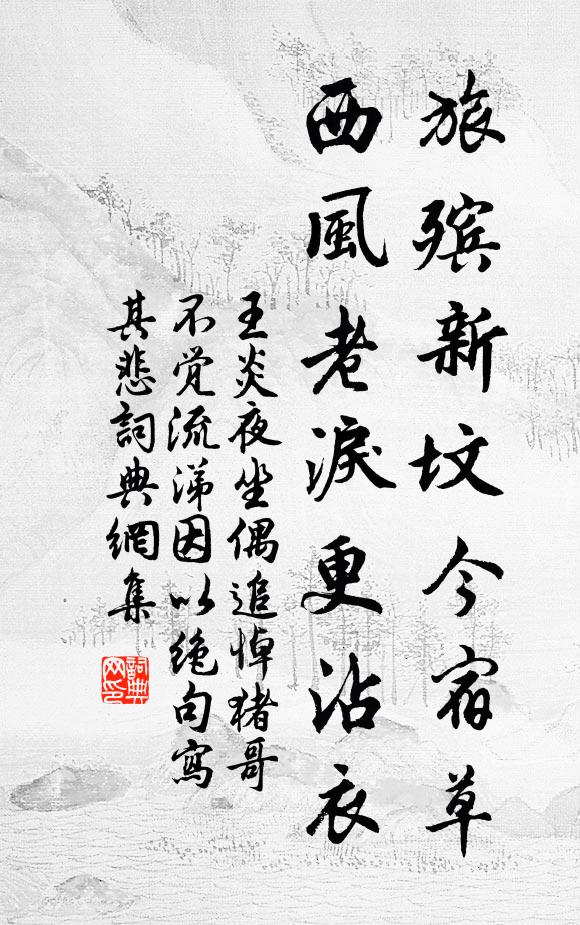 旅殡新坟今宿草
西風老淚更沾衣
王炎夜坐偶追悼猪哥
不觉流涕因以绝句寫
其悲詞典網集
詞典
网印